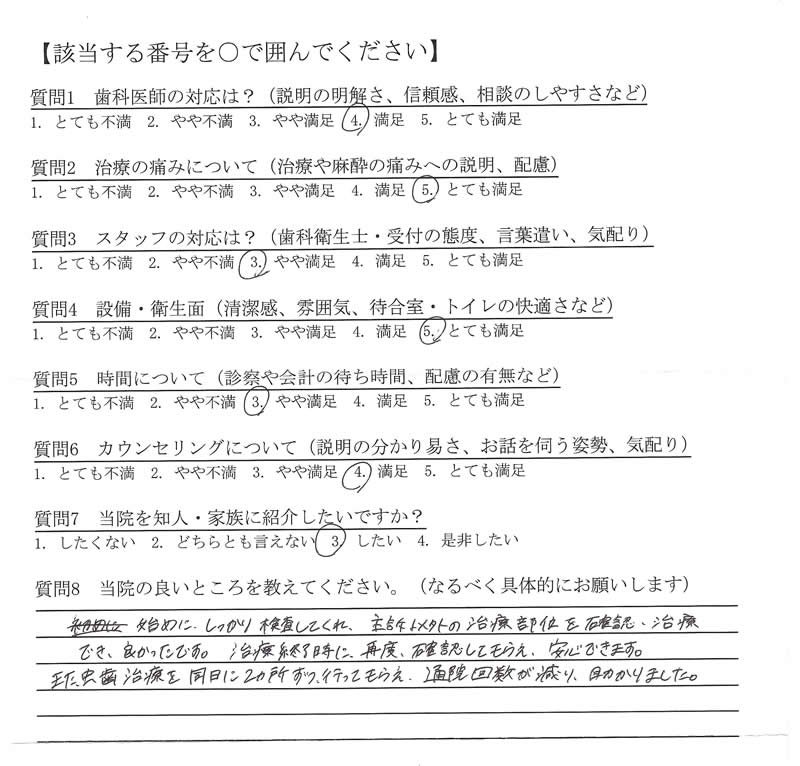 【該当する番号を○で囲んでください】
質問1 歯科医師の対応は？（説明の明解さ、信頼感、相談のしやすさなど）
1. とても不満 2. やや不満 3. やや満足 4. 満足 5. とても満足
質問2 治療の痛みについて（治療や麻酔の痛みへの説明、配慮）
1. とても不満 2. やや不満 3. やや満足 4. 満足 5. とても満足
質問3 スタッフの対応は？（歯科衛生士・受付の態度、言葉遣い、気配り）
1. とても不満 2. やや不満 3. やや満足 4. 満足 5. とても満足
質問4 設備・衛生面（清潔感、雰囲気、待合室・トイレの快適さなど）
1. とても不満 2. やや不満 3. やや満足 4. 満足 5. とても満足
質問5 時間について（診察や会計の待ち時間、配慮の有無など）
1. とても不満 2. やや不満 3. やや満足 4. 満足 5. とても満足
質問6 カウンセリングについて（説明の分かり易さ、お話を伺う姿勢、気配り）
1. とても不満 2. やや不満 3. やや満足 4. 満足 5. とても満足
質問7 当院を知人・家族に紹介したいですか？
1. したくない 2. どちらとも言えない 3. したい 4. 是非したい
質問8 当院の良いところを教えてください。（なるべく具体的にお願いします）
始めに、しっかり検査してくれ、の治療部位を確認、治療
でき、良かったです。治療終了時に、再度、確認してもらえ、安心できます。
また虫歯治療を同日に2カ所ずつ、行ってもらえ、通院回数が減り、助かりました。